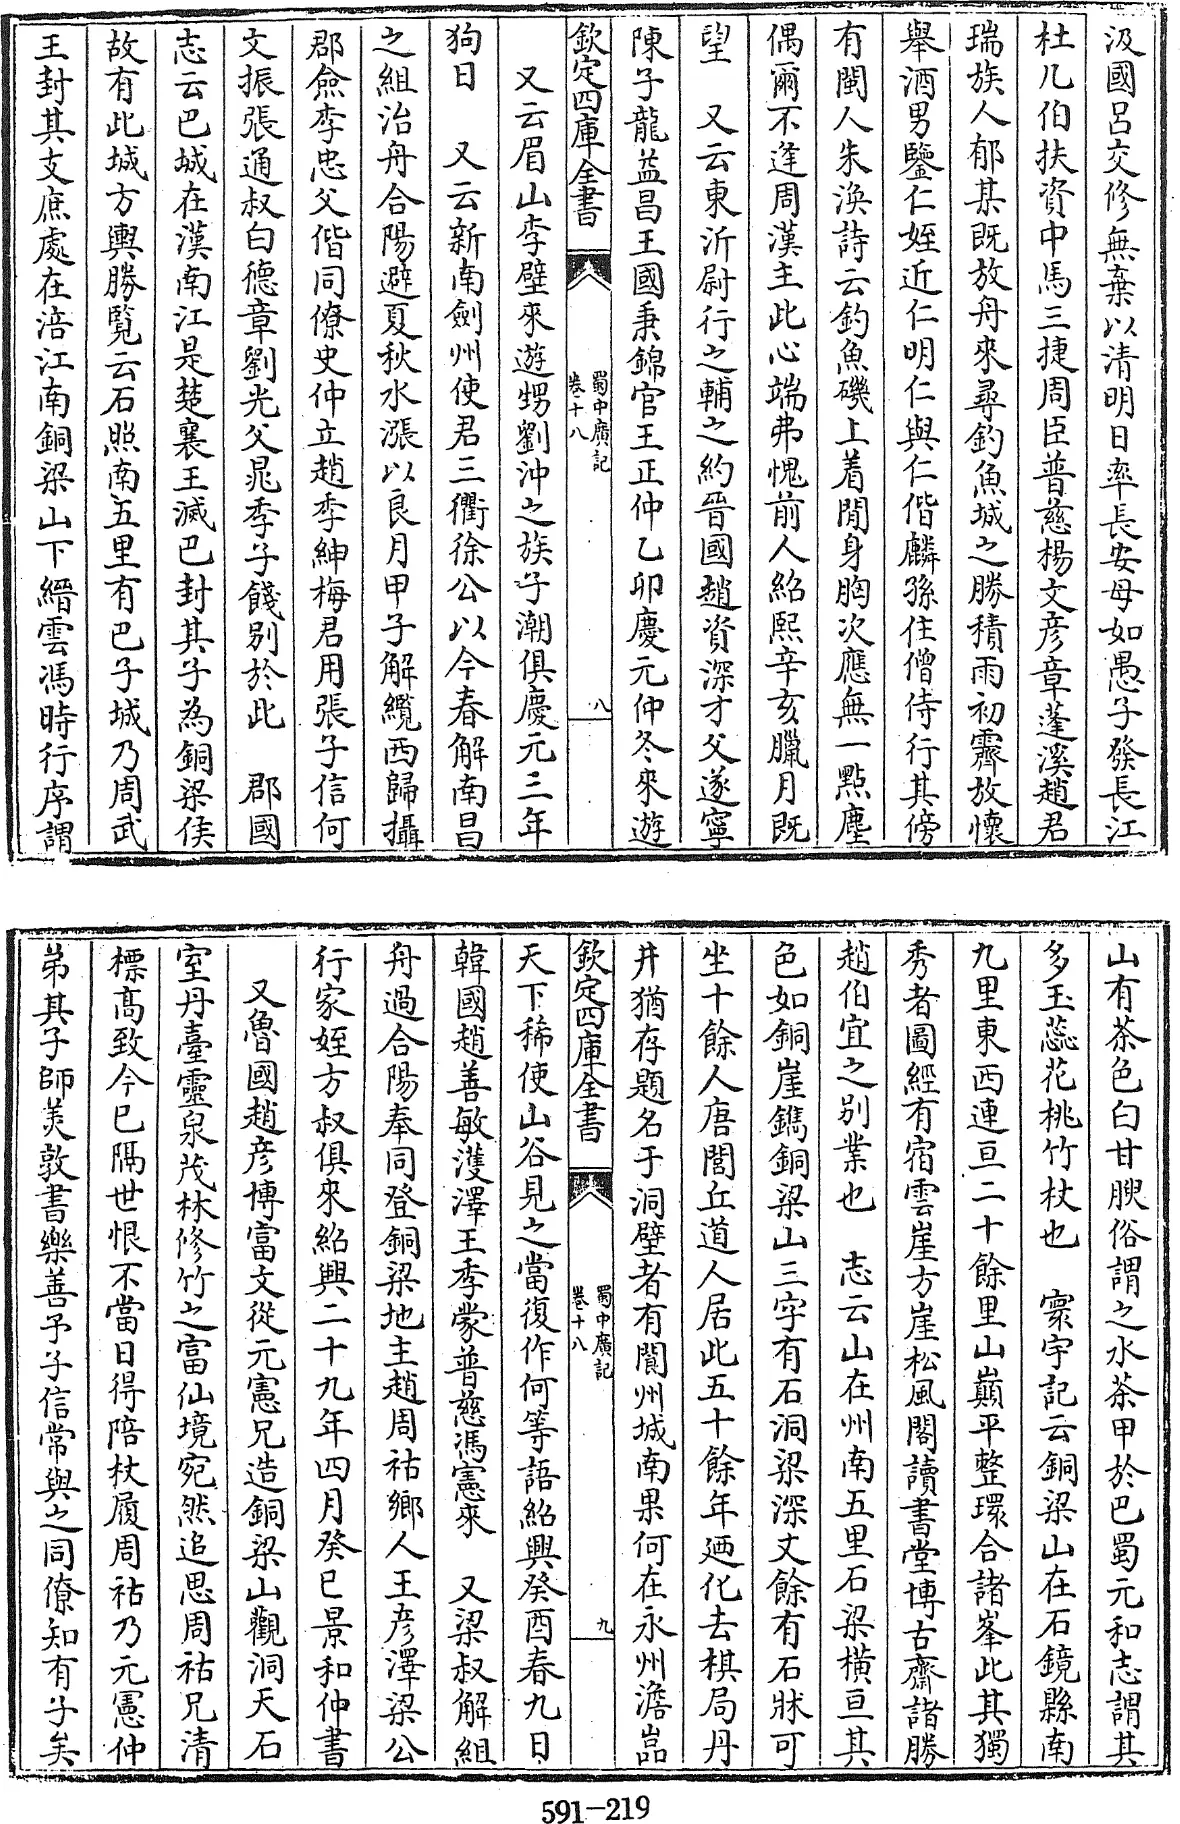 汲國呂交修無棄以清明日率長安母如愚子發長江
杜几伯扶資中馬三捷周臣普慈楊文彥章蓬溪趙君
瑞族人郁某既放舟來尋釣魚城之勝積雨初霽放懷
舉酒男鑒仁姪近仁明仁與仁偕麟孫住僧侍行其傍
有閩人朱渙詩云釣魚磯上着閒身胸次應無一點塵
偶爾不逢周漢主此心端弗愧前人紹熙辛亥臘月既
望　又云東沂尉行之輔之約晉國趙資深才父遂寧
陳子龍益昌王國秉錦官王正仲乙卯慶元仲冬來遊
欽定四庫全書
蜀中廣記
卷十八
八
又云眉山李壁來遊甥劉沖之族子潮俱慶元三年
狗日　又云新南劍州使君三衢徐公以今春解南昌
之組治舟合陽避夏秋水漲以良月甲子解纜西歸攝
郡僉李忠父偕同僚史仲立趙季紳梅君用張子信何
文振張通叔白德章劉光父晁季子餞別於此　郡國
志云巴城在漢南江是楚襄王滅巴封其子為銅梁侯
故有此城方輿勝覽云石照南五里有巴子城乃周武
王封其支庶處在涪江南銅梁山下縉雲馮時行序謂
山有茶色白甘腴俗謂之水茶甲於巴蜀元和志謂其
多玉蕊花桃竹杖也　寰宇記云銅梁山在石鏡縣南
九里東西連亘二十餘里山巔平整環合諸峯此其獨
秀者圖經有宿雲崖方崖松風閣讀書堂博古齋諸勝
趙伯宜之別業也　志云山在州南五里石梁橫亘其
色如銅崖鐫銅梁山三字有石洞梁深丈餘有石牀可
坐十餘人唐閭丘道人居此五十餘年廼化去棋局丹
井猶存題名于洞壁者有閬州城南果何在永州澹嵓
欽定四庫全書
蜀中廣記
卷十八
九
天下稀使山谷見之當復作何等語紹興癸酉春九日
韓國趙善敏濩澤王季蒙普慈馮憲來　又梁叔解組
舟過合陽奉同登銅梁地主趙周祜鄉人王彥澤梁公
行家姪方叔俱來紹興二十九年四月癸巳景和仲書
又魯國趙彥博富文從元憲兄造銅梁山觀洞天石
室丹臺靈泉茂林修竹之富仙境宛然追思周祜兄清
標高致今已隔世恨不當日得陪杖履周祜乃元憲仲
弟其子師羙敦書樂善予子信常與之同僚知有子矣
591-219